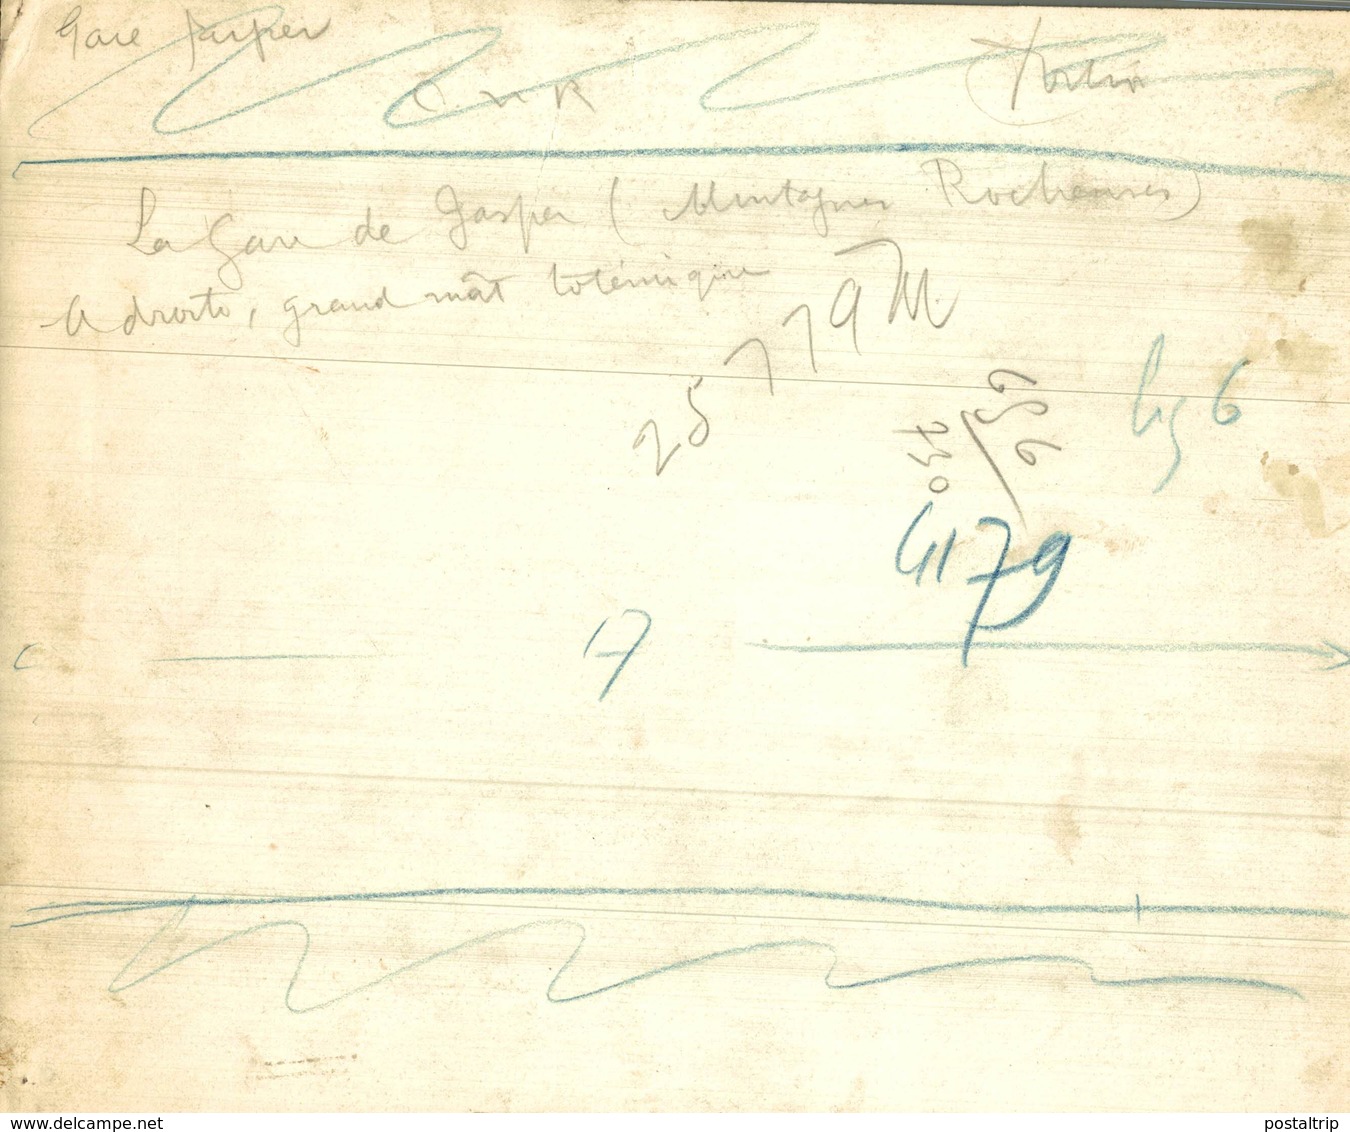 Gare Jasper
C N R
La Gare de Jasper (Montagnes Rocheuses)
A droite, grand mât totémique
25779 M
656
4179
17
www.delcampe.net
postaltrip